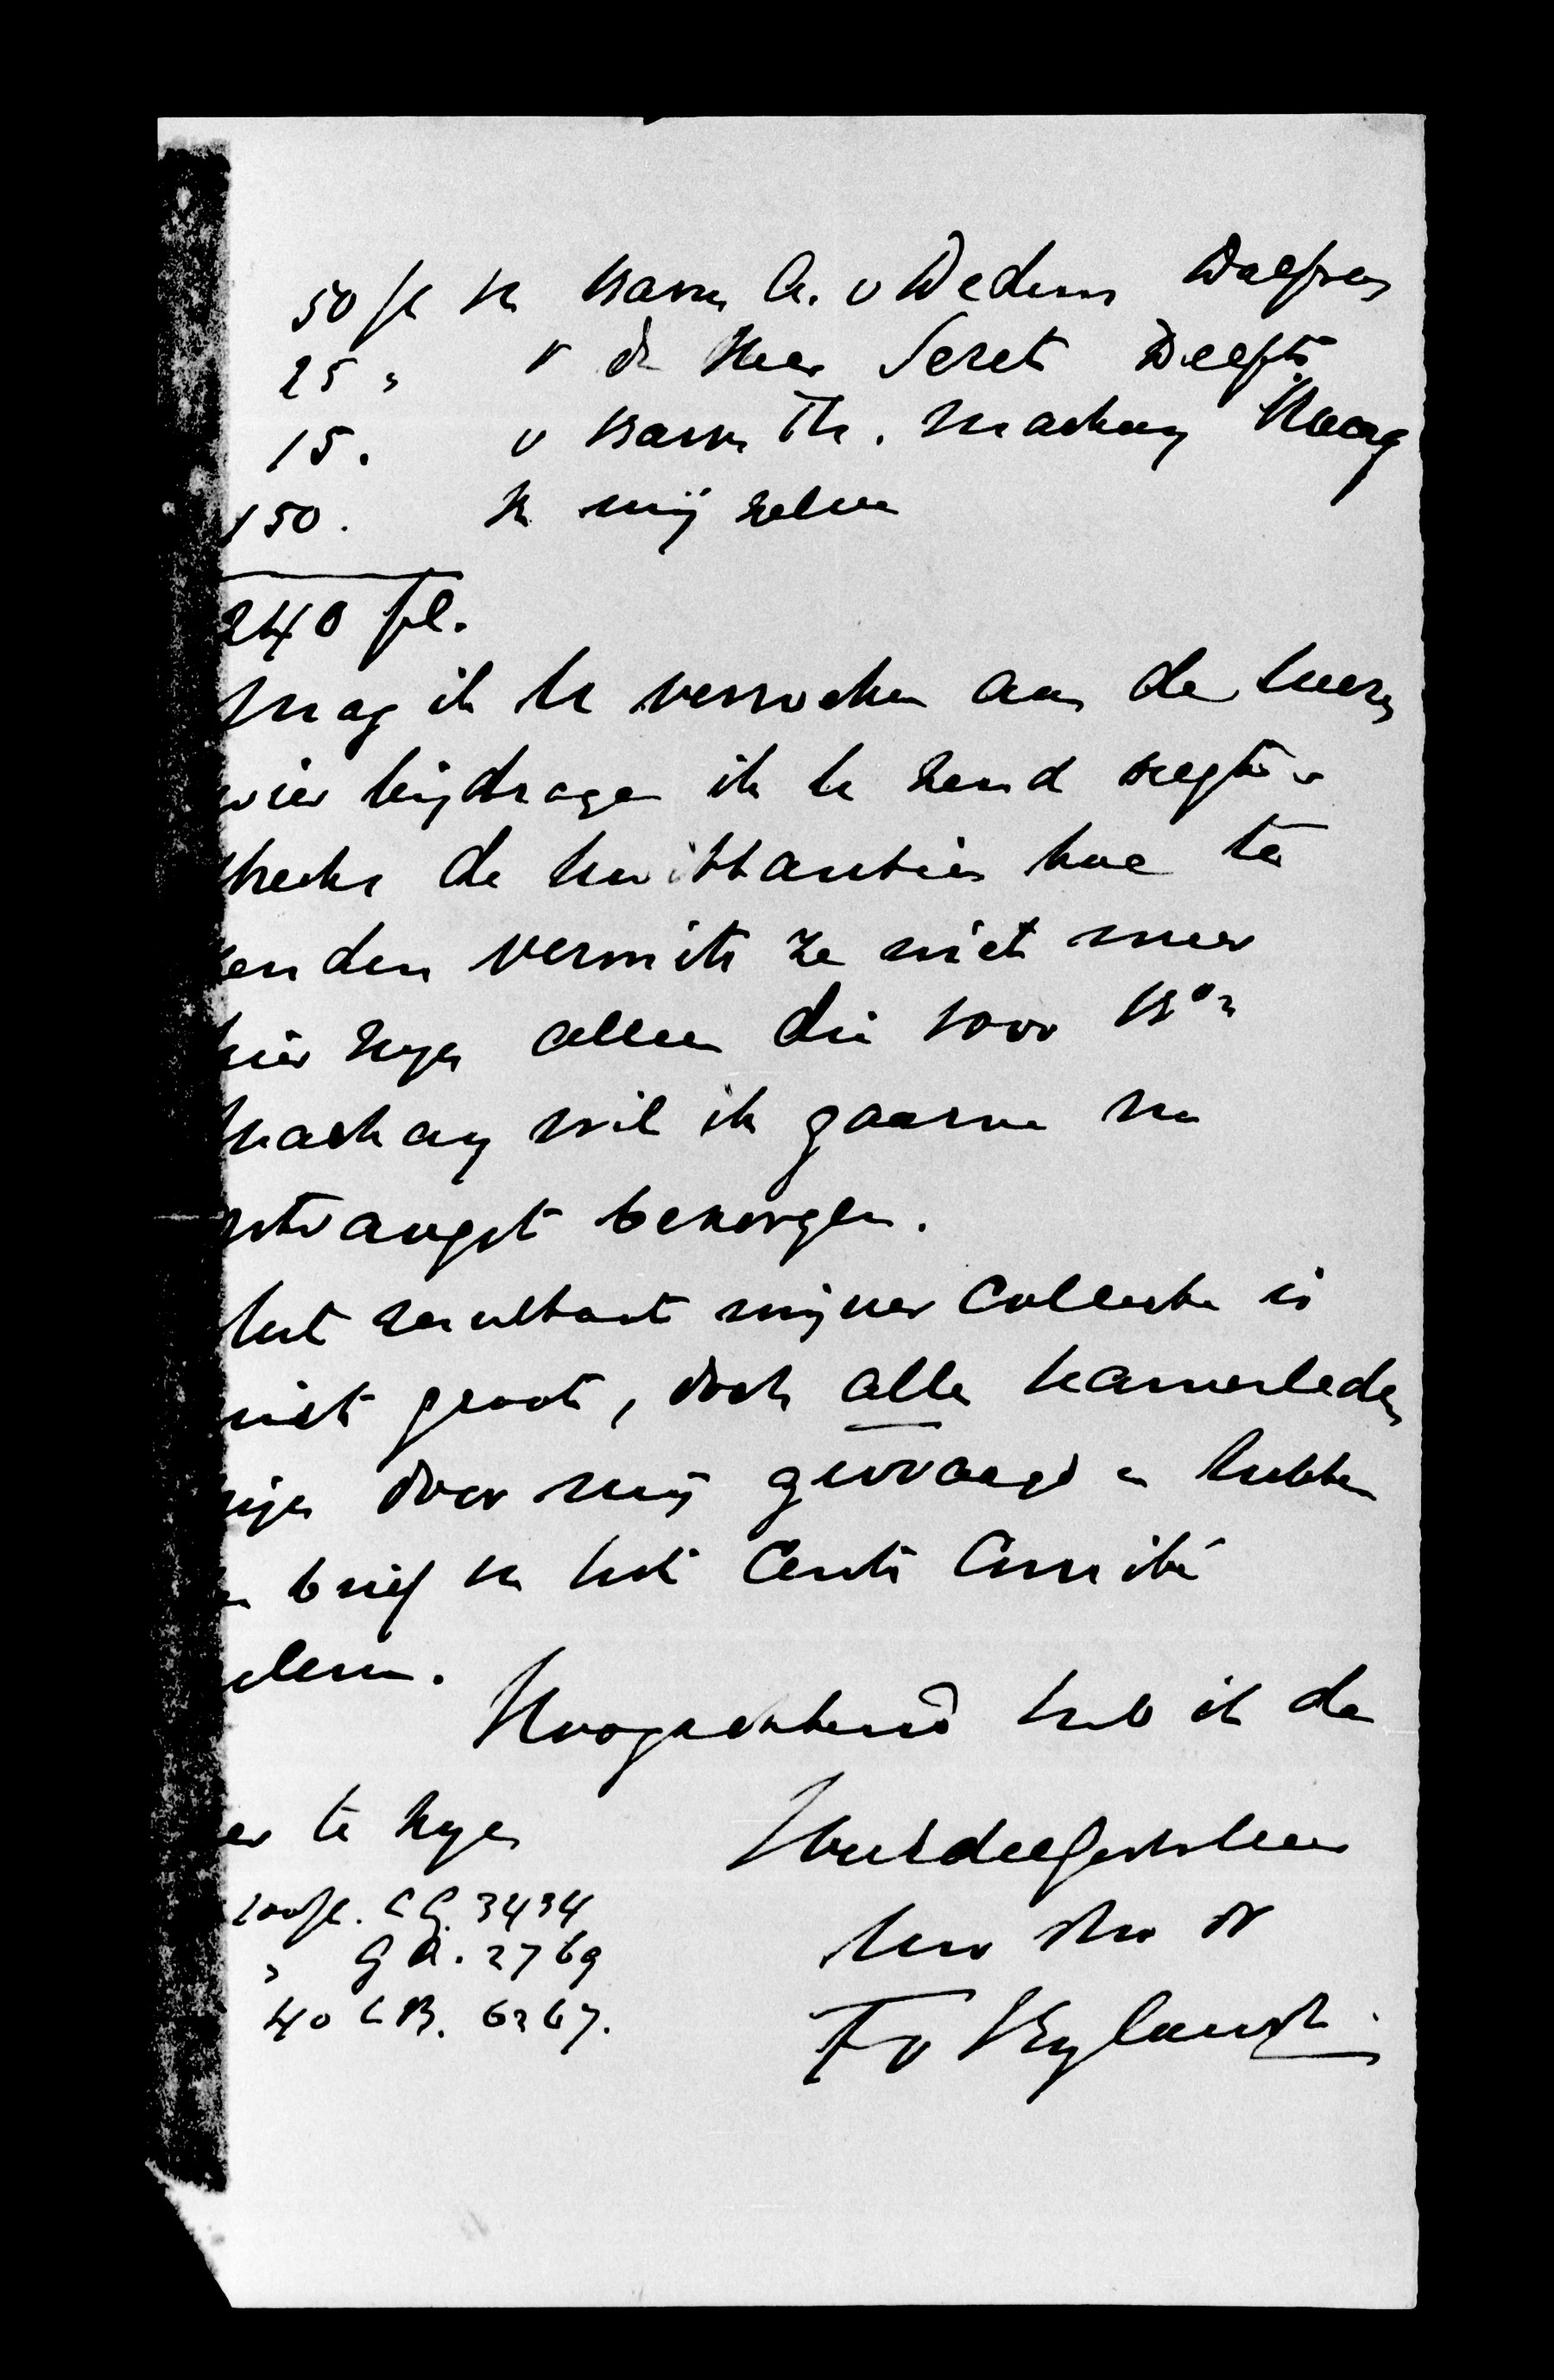 50 fl v Baron A. v Dedem Dalfsen
25 " v de Heer Seret Delft
15. v Baron Th. Mackay Haag
150. v mij zelve
240 fl.
Mag ik U verzoeken aan de heeren
wier bijdrage ik U zend regt
de kwittantien toe te
zenden vermits ze niet meer
hier zyn alleen die voor Bon
Mackay wil ik gaarne na
ontvangst bezorgen.
het resultaat mijner Collecte is
niet groot, doch alle kamerleden
zijn door mij gevraagd en hebben
brief v het Centr Comité

Hoogachtend heb ik de
eer te zyn
HoogEdelGestr
Uw dw dr
F v Bylandt
200 fl. C G. 3434
" G A. 2769
40 L B. 6267.